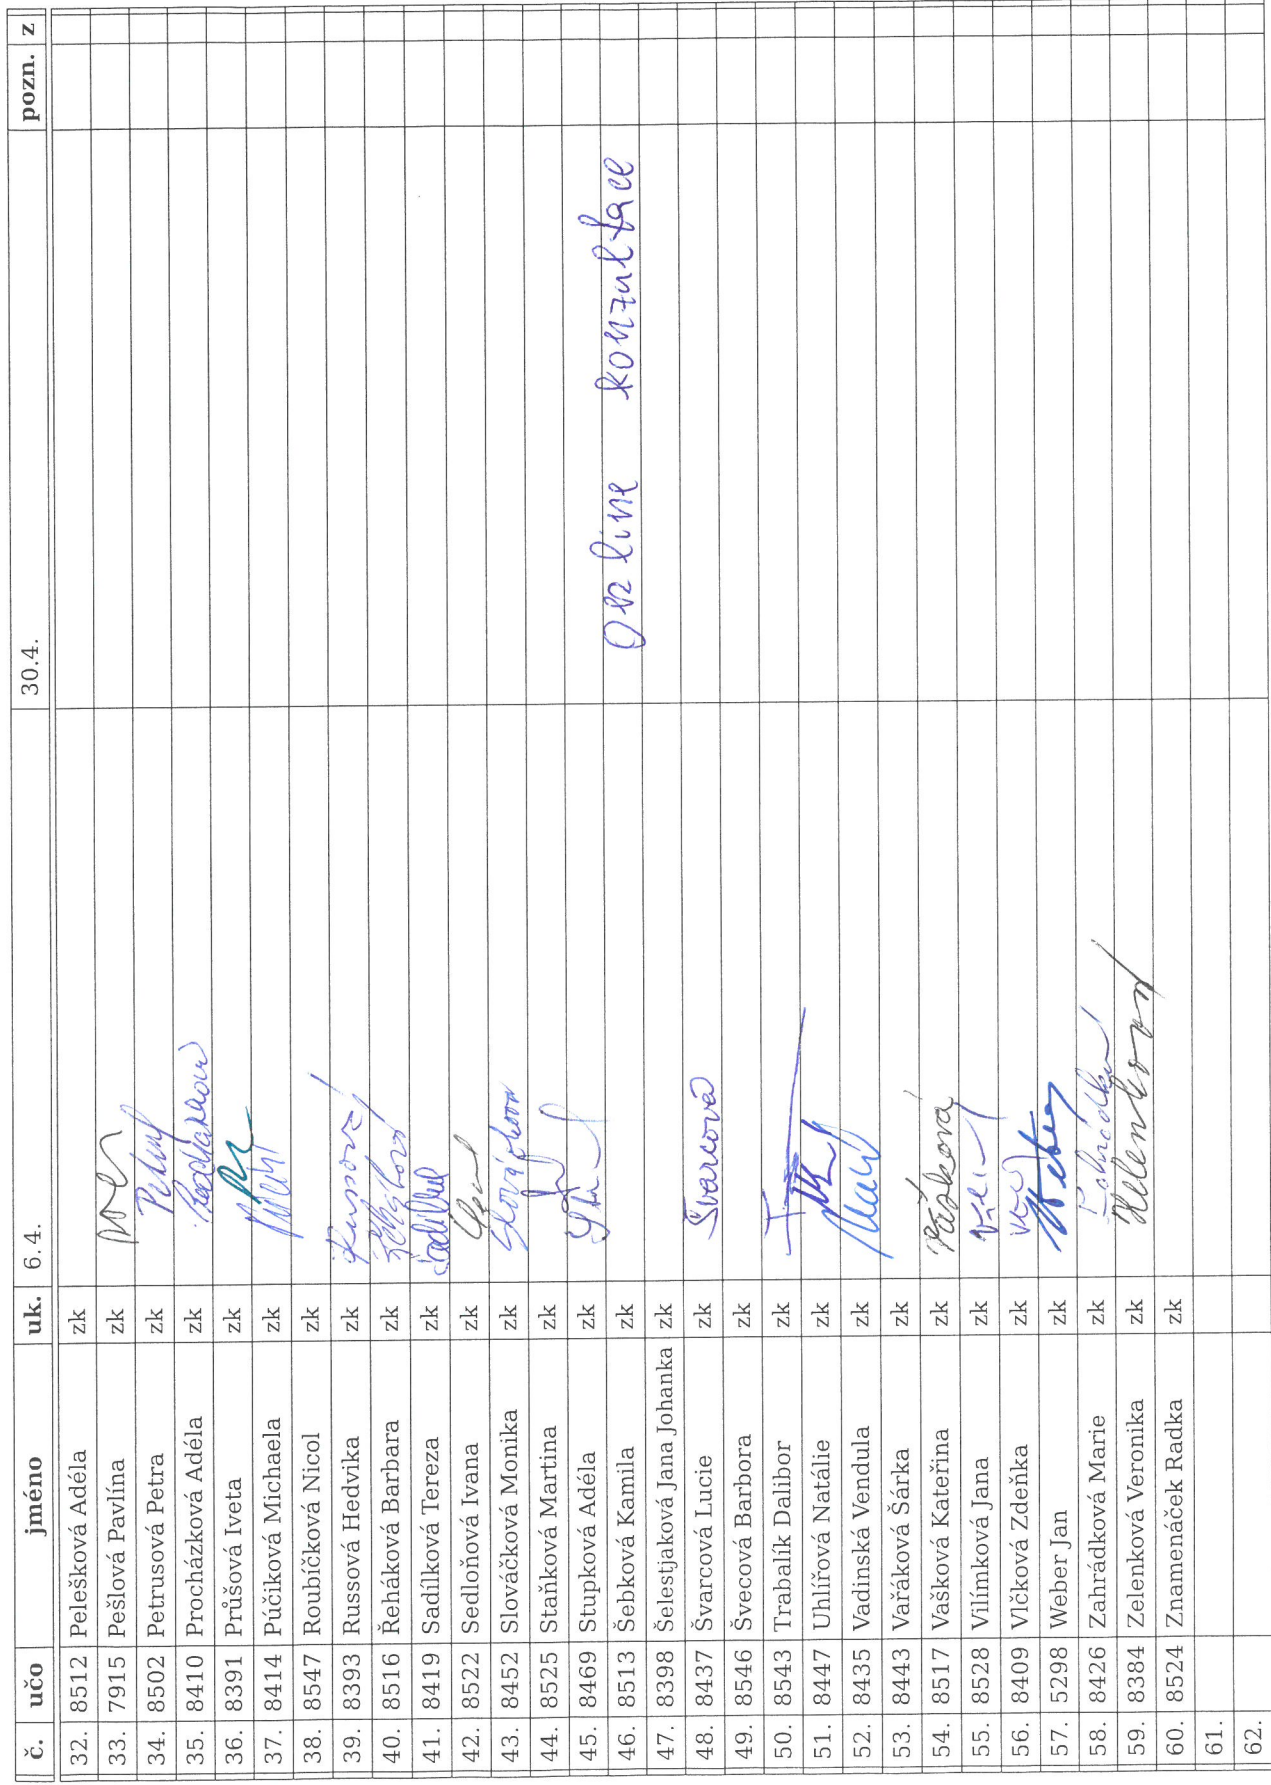 č. učo jméno uk. 6.4. 30.4. pozn. z
32. 8512 Pelešková Adéla zk
33. 7915 Pešlová Pavlína zk
34. 8502 Petrusová Petra zk
35. 8410 Procházková Adéla zk
36. 8391 Průšová Iveta zk
37. 8414 Púčiková Michaela zk
38. 8547 Roubíčková Nicol zk
39. 8393 Russová Hedvika zk
40. 8516 Řeháková Barbara zk
41. 8419 Sadílková Tereza zk
42. 8522 Sedloňová Ivana zk
43. 8452 Slováčková Monika zk
44. 8525 Staňková Martina zk
45. 8469 Stupková Adéla zk
46. 8513 Šebková Kamila zk on line konzultace
47. 8398 Šelestjaková Jana Johanka zk
48. 8437 Švarcová Lucie zk Švarcová
49. 8546 Švecová Barbora zk
50. 8543 Trabalík Dalibor zk
51. 8447 Uhlířová Natálie zk
52. 8435 Vadinská Vendula zk
53. 8443 Vařáková Šárka zk
54. 8517 Vašková Kateřina zk Vašková
55. 8528 Vilímková Jana zk
56. 8409 Vlčková Zdeňka zk
57. 5298 Weber Jan zk Weber
58. 8426 Zahrádková Marie zk
59. 8384 Zelenková Veronika zk Zelenková
60. 8524 Znamenáček Radka zk
61.
62.